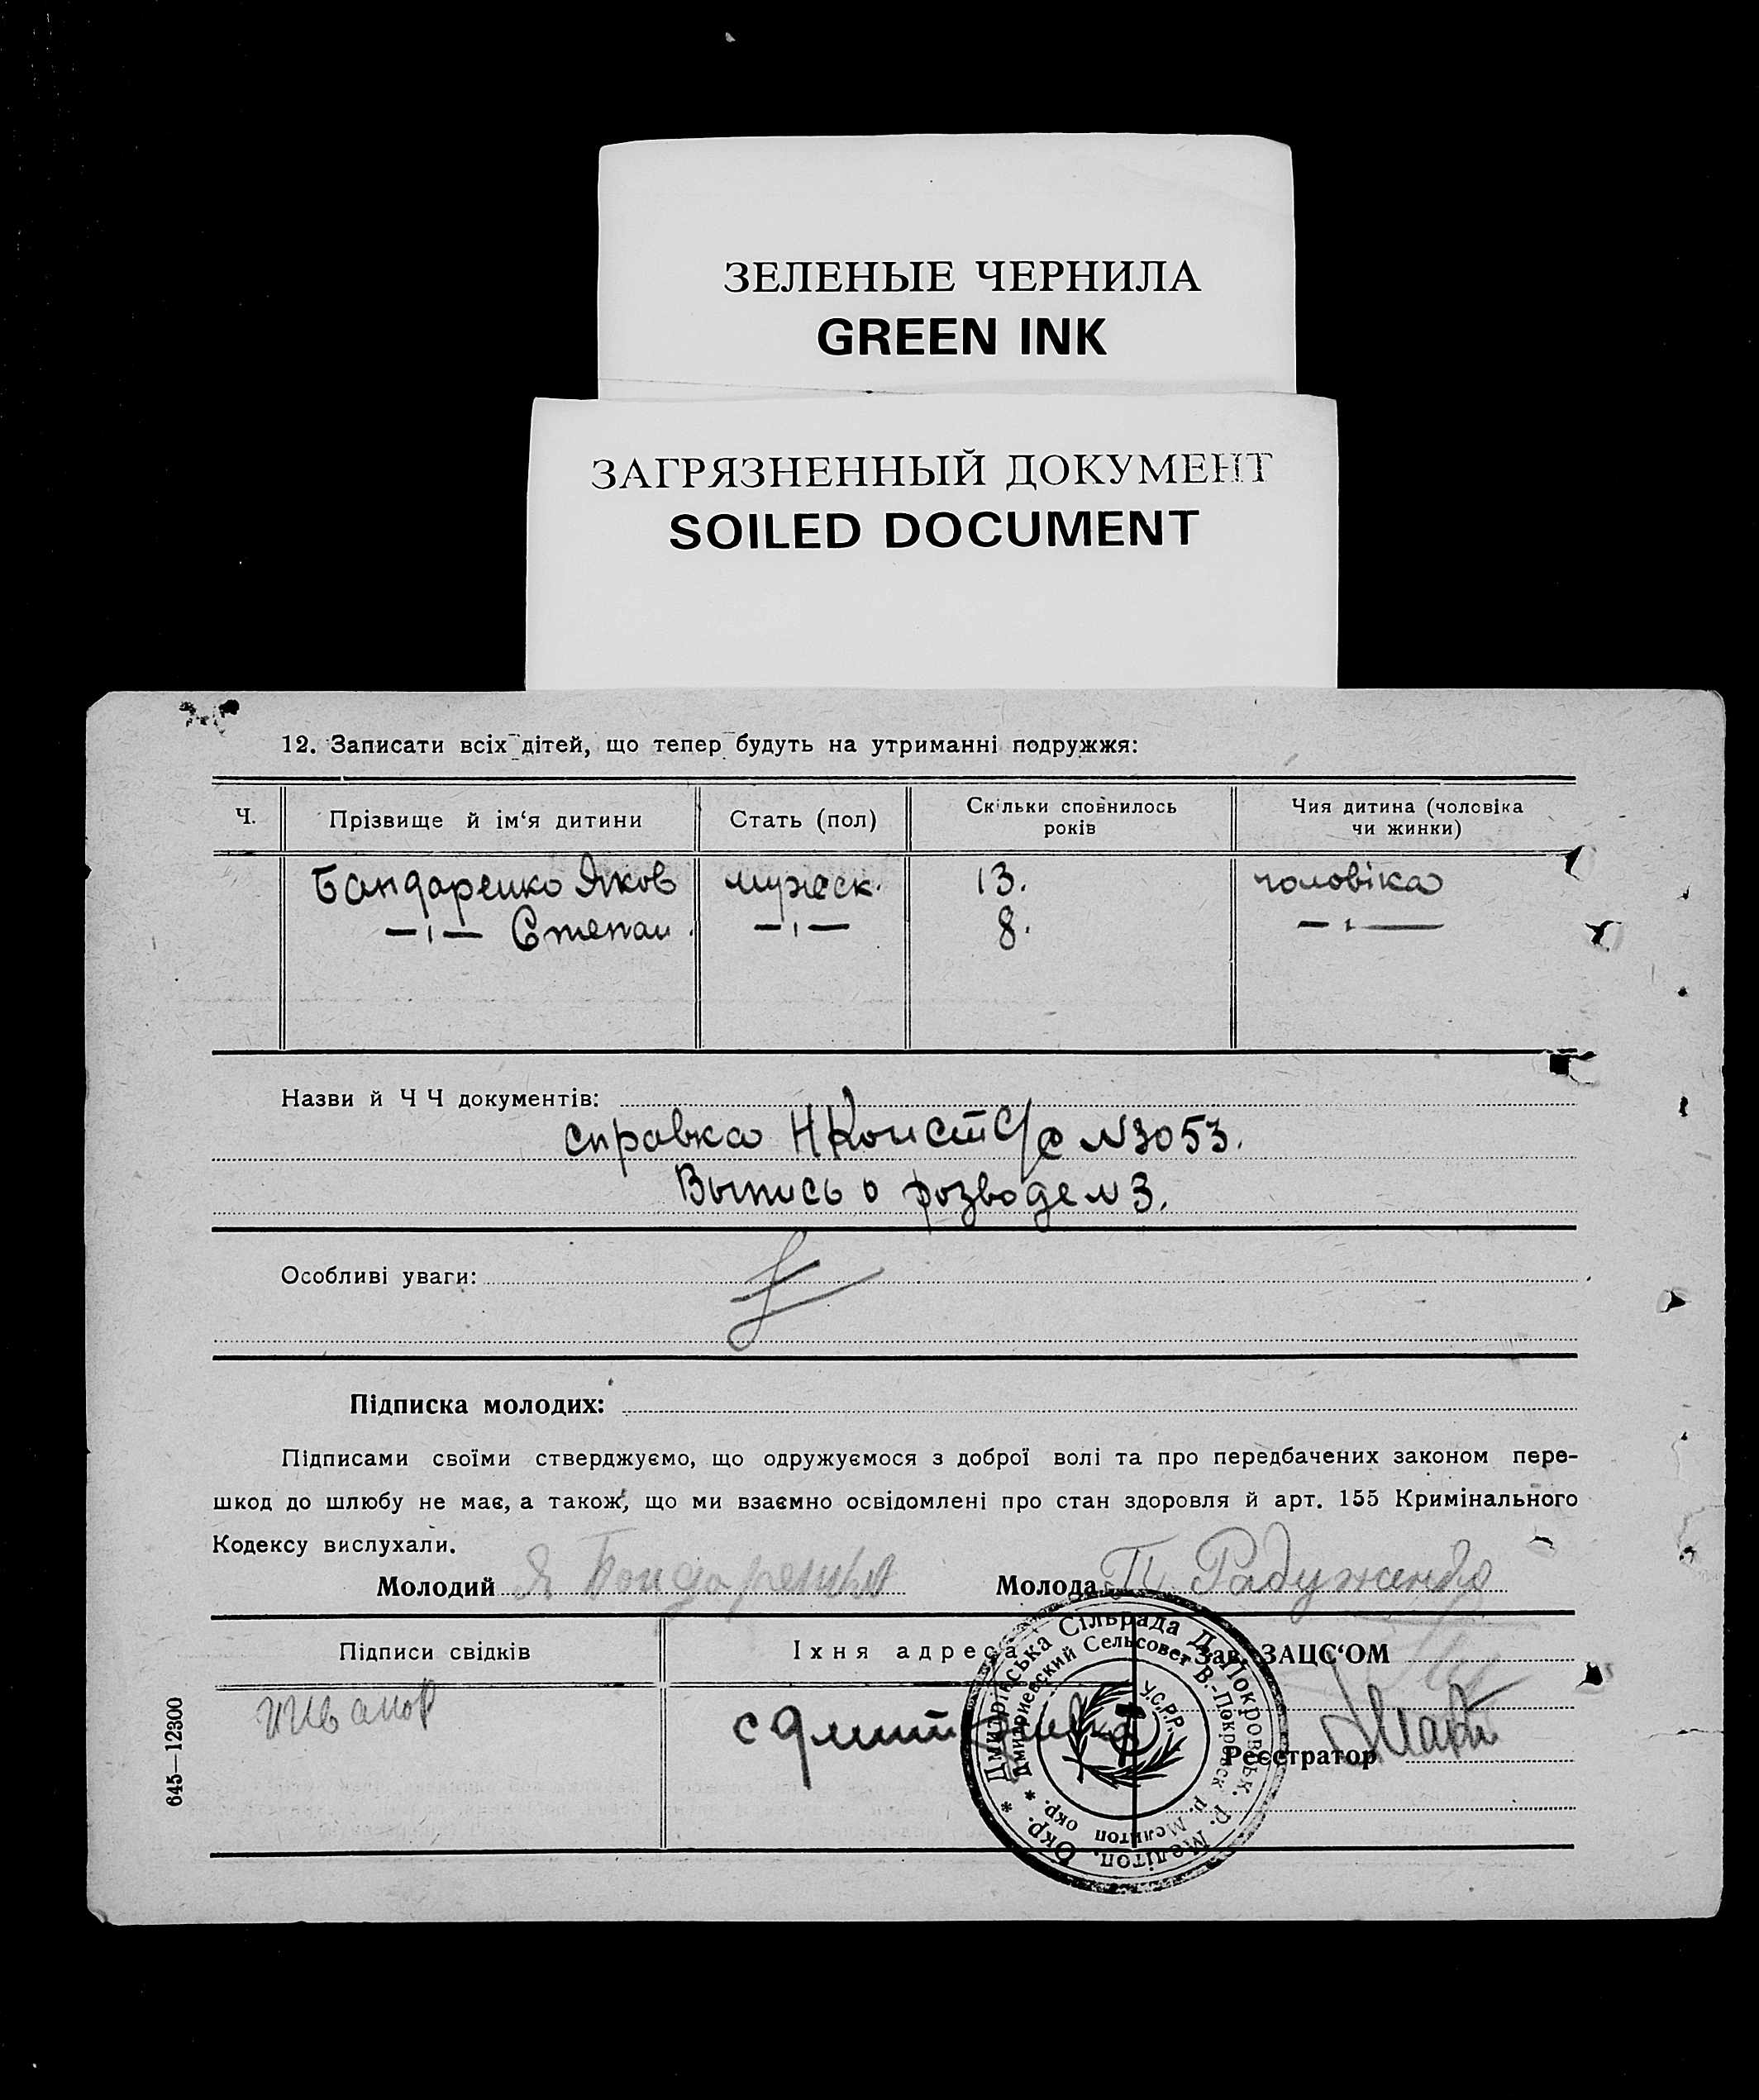 ЗЕЛЕНЫЕ ЧЕРНИЛА
GREEN INK
ЗАГРЯЗНЕННЫЙ ДОКУМЕНТ
SOILED DOCUMENT
12. Записати всіх дітей, що тепер будуть на утриманні подружжя:
Ч. Прізвище й ім‘я дитини Стать (пол) Скільки сповнилось років Чия дитина (чоловіка чи жинки)
Бандаренко Яков мужеск. 13. чоловіка
—ı— Степан. —ı— 8. —ı—
Назви й Ч Ч документів:
справка С/с N3053.
Выпись о розводе N3.
Особливі уваги:
Підписка молодих:
Підписами своїми стверджуємо, що одружуємося з доброї волі та про передбачених законом пере-
шкод до шлюбу не має, а також, що ми взаємно освідомлені про стан здоровля й арт. 155 Кримінального
Кодексу вислухали.
Молодий Я Бондаренко Молода П Радуженко
Підписи свідків Їхня адреса Зав. ЗАЦС‘ОМ
Иванов с Дмитрівка
Реєстратор
Дмитрівська Сільрада Покровськ. р. Мелітоп. Окр.
Дмитриевский Сельсовет В.-Покровск р. Мелитоп окр.
У.С.Р.Р.
645—12300